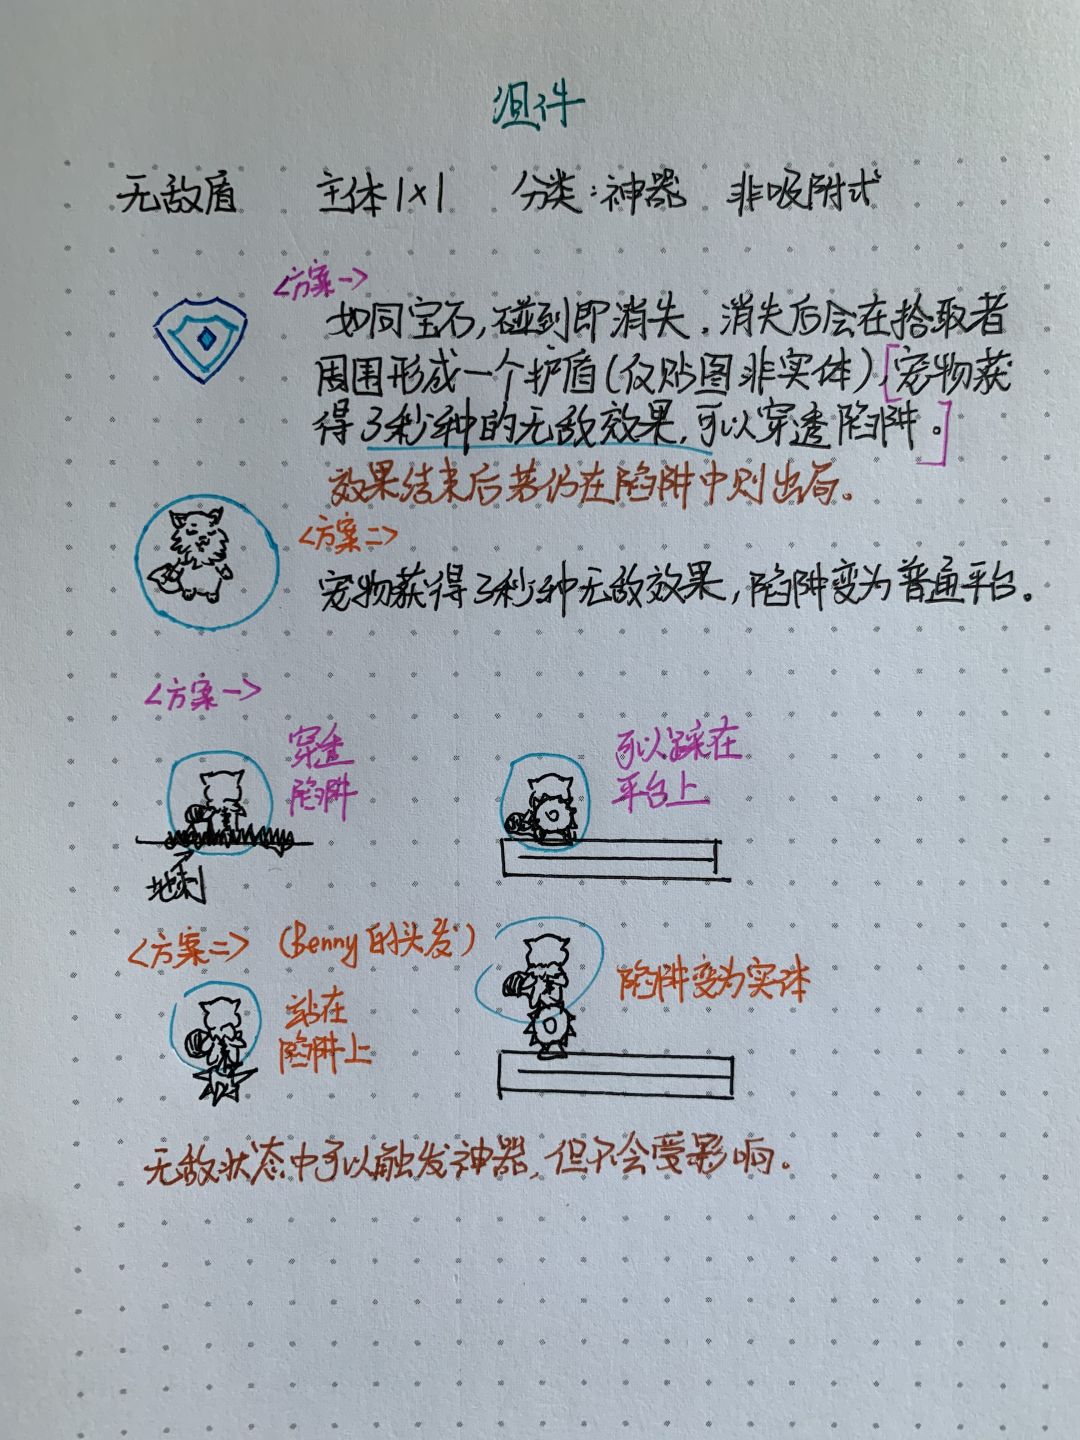 组件
无敌盾 主体1×1 分类:神器 非吸附式
<方案一>
如同宝石,碰到即消失.消失后会在拾取者
周围形成一个护盾(仅贴图非实体),[宠物获
得3秒种的无敌效果,可以穿透陷阱。]
效果结束后若仍在陷阱中则出局。
<方案二>
宠物获得3秒种无敌效果,陷阱变为普通平台。
<方案一>
穿透
陷阱
可以踩在
平台上
地刺
<方案二> (Benny的头发)
站在
陷阱上
陷阱变为实体
无敌状态中可以触发神器,但不会受影响.